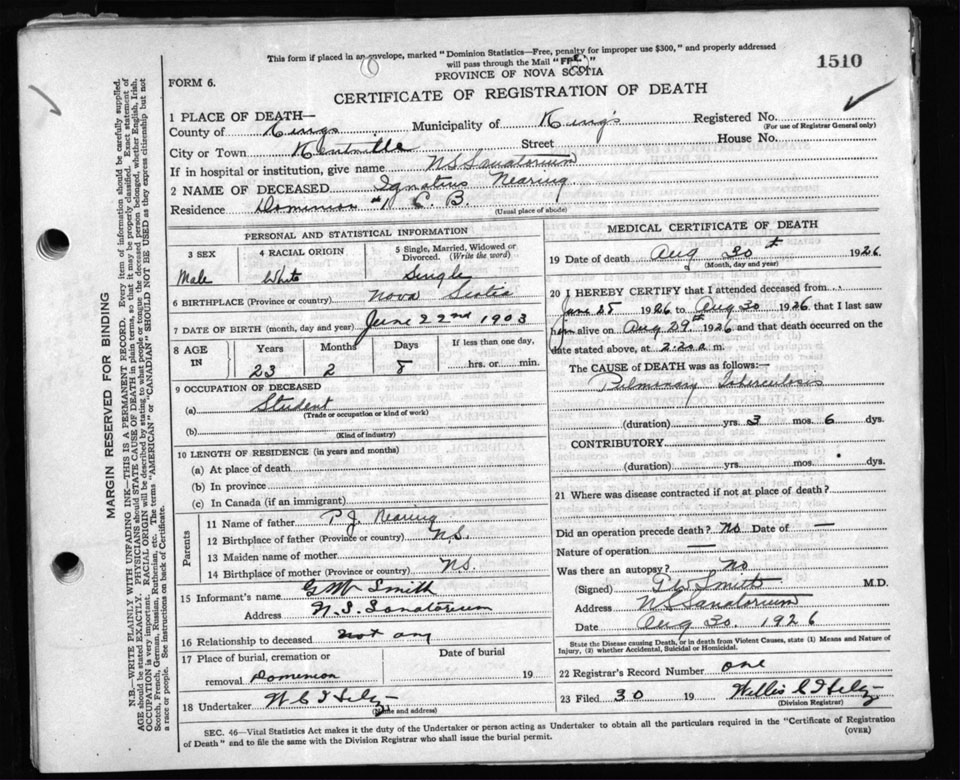 This form if placed in an envelope, marked "Dominion Statistics—Free, penalty for improper use $300," and properly addressed
will pass through the Mail "FREE."
1510
FORM 6.
PROVINCE OF NOVA SCOTIA
CERTIFICATE OF REGISTRATION OF DEATH
1 PLACE OF DEATH—
County of Kings Municipality of Kings Registered No.
(For use of Registrar General only)
City or Town Kentville Street House No.
If in hospital or institution, give name N S Sanatorium
2 NAME OF DECEASED Ignatius Nearing
Residence Dominion #1 C. B.
(Usual place of abode)
PERSONAL AND STATISTICAL INFORMATION
3 SEX Male
4 RACIAL ORIGIN White
5 Single, Married, Widowed or Divorced. (Write the word) Single
6 BIRTHPLACE (Province or country) Nova Scotia
7 DATE OF BIRTH (month, day and year) June 22nd 1903
8 AGE IN Years Months Days If less than one day,
23 2 8 hrs. or min.
9 OCCUPATION OF DECEASED
(a) Student
(Trade or occupation or kind of work)
(b)
(Kind of industry)
10 LENGTH OF RESIDENCE (in years and months)
(a) At place of death
(b) In province
(c) In Canada (if an immigrant)
Parents
11 Name of father P. J. Nearing
12 Birthplace of father (Province or country) N.S.
13 Maiden name of mother
14 Birthplace of mother (Province or country) N.S.
15 Informant's name Smith
Address N. S. Sanatorium
16 Relationship to deceased not any
17 Place of burial, cremation or Date of burial
removal Dominion 19
18 Undertaker
(Name and address)
MEDICAL CERTIFICATE OF DEATH
19 Date of death Aug 30th 1926
(Month, day and year)
20 I HEREBY CERTIFY that I attended deceased from
June 25 1926 to Aug 30 1926 that I last saw
him alive on Aug 29th 1926 and that death occurred on the
date stated above, at 2.20 a m.
The CAUSE OF DEATH was as follows:—
Pulmonary Tuberculosis
(duration) yrs. 3 mos. 6 dys.
CONTRIBUTORY
(duration) yrs. mos. dys.
21 Where was disease contracted if not at place of death?
Did an operation precede death? No Date of —
Nature of operation —
Was there an autopsy? No
(Signed) Smith M.D.
Address N S Sanatorium
Date Aug 30 1926
State the Disease causing Death, or in death from Violent Causes, state (1) Means and Nature of
Injury, (2) whether Accidental, Suicidal or Homicidal.
22 Registrar's Record Number one
23 Filed 30 19
(Division Registrar)
SEC. 46—Vital Statistics Act makes it the duty of the Undertaker or person acting as Undertaker to obtain all the particulars required in the "Certificate of Registration
of Death" and to file the same with the Division Registrar who shall issue the burial permit. (OVER)
MARGIN RESERVED FOR BINDING
N.B.—WRITE PLAINLY WITH UNFADING INK—THIS IS A PERMANENT RECORD. Every item of information should be carefully supplied.
AGE should be stated EXACTLY. PHYSICIANS should STATE CAUSE OF DEATH in plain terms, so that it may be properly classified. Exact statement of
OCCUPATION is very important. RACIAL ORIGIN will be described by stating to what people or tongue the deceased person belonged, whether English, Irish,
Scotch, French, German, Russian, Ruthenian, etc. The terms "AMERICAN" or "CANADIAN" SHOULD NOT BE USED as they express citizenship but not
a race or people. See instructions on back of Certificate.